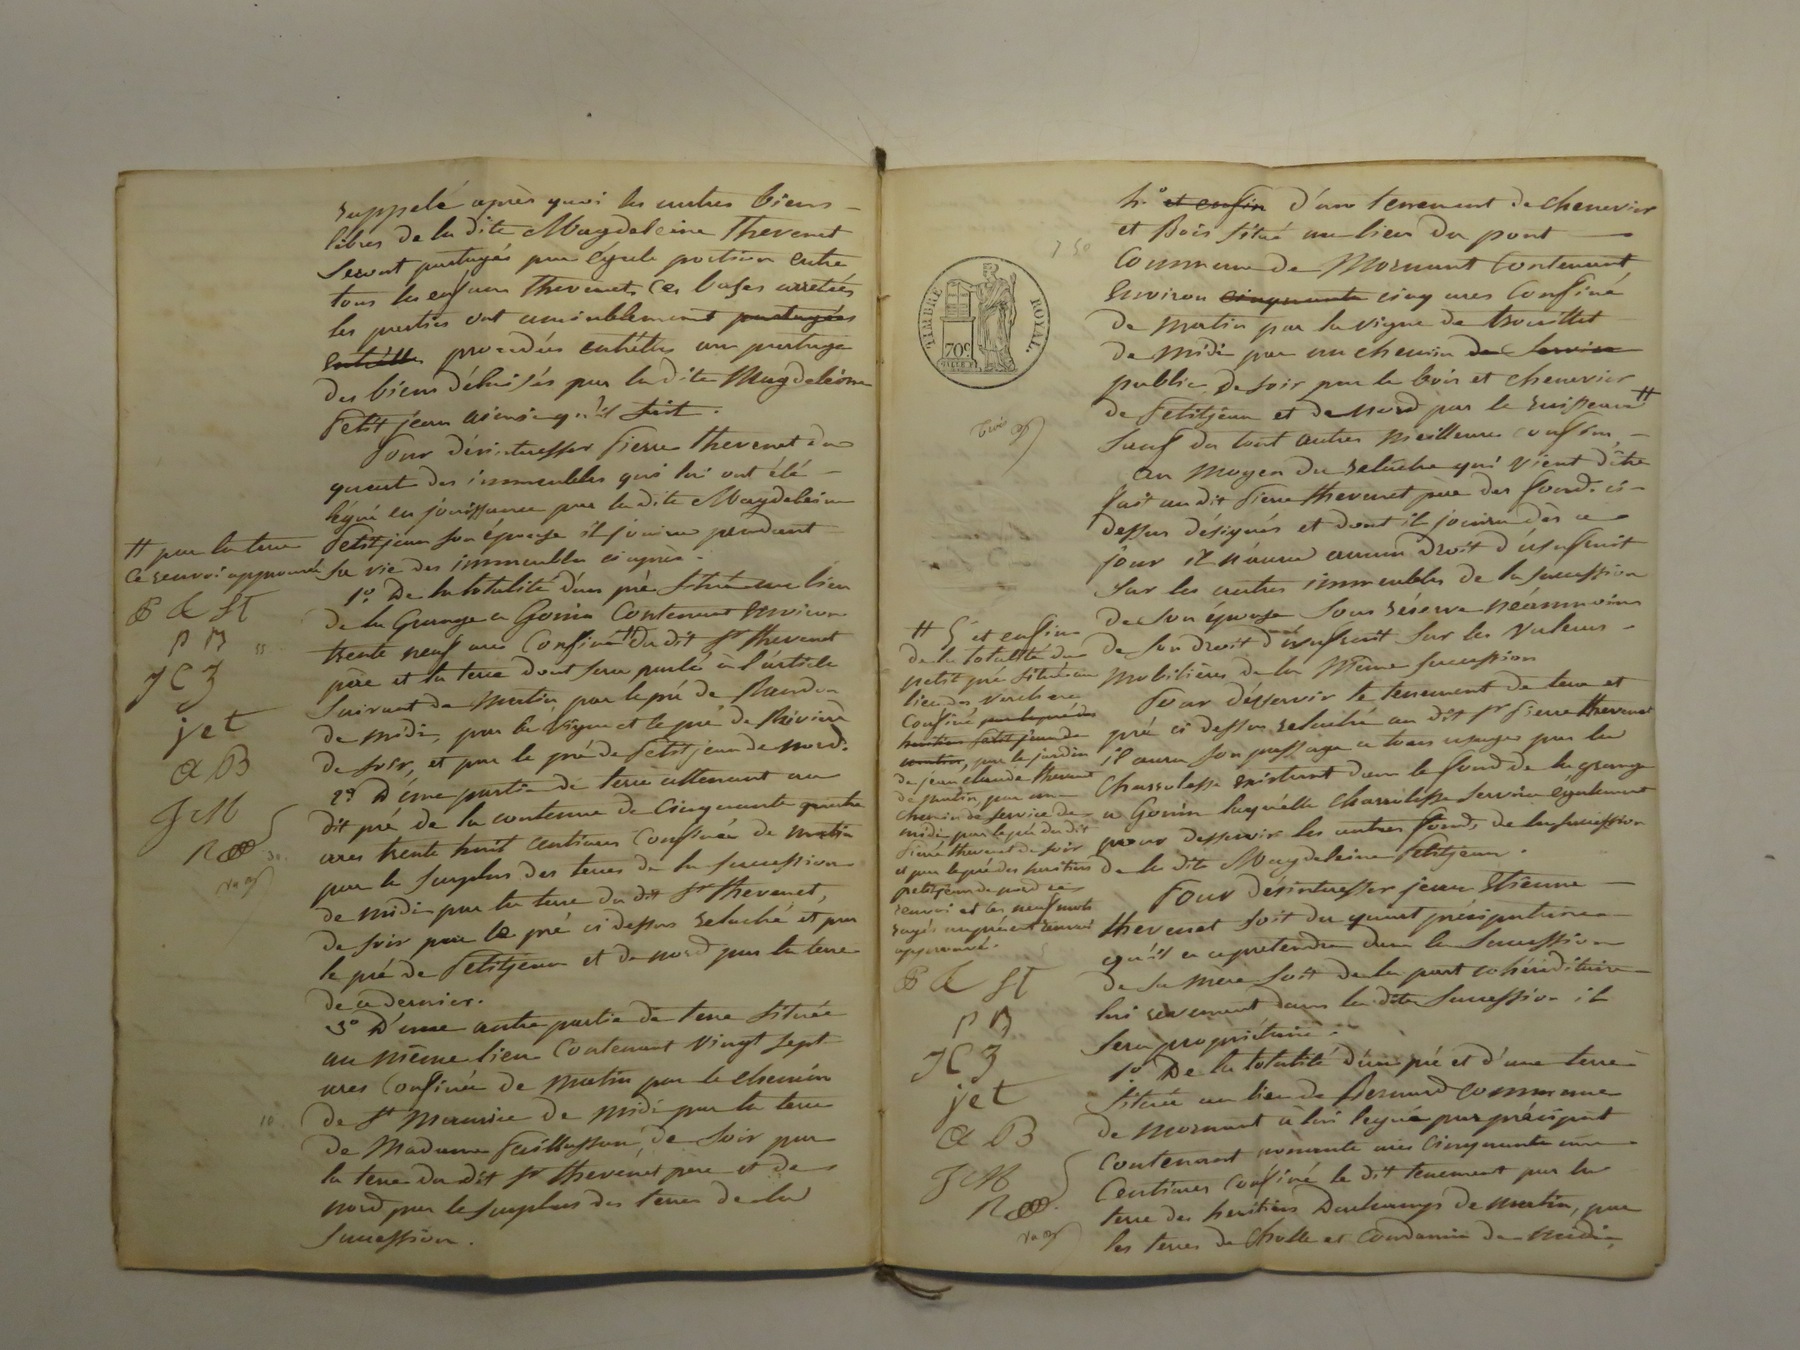 rappelé après quoi les autres biens
libres de la dite Magdeleine Thevenet
seront partagés par égale portion entre
tous les enfans Thevenet. Ces bases arretées
les parties ont amiablement partagées
entr'elles procédées entr'elles au partage
des biens délaissés par la dite Magdeleine
Petitjean ainsi qu'il suit.
Pour désintéresser Pierre Thevenet du
quart des immeubles qui lui ont été
légué en jouissance par la dite Magdeleine
Petitjean son épouse il jouira pendant
sa vie des immeubles ci après.
1° De la totalité d'un pré situé au lieu
de la Grange a Gonin contenant environ
trente neuf ares Confiné # du dit Sr Thevenet
père et la terre dont sera parlé à l'article
suivant de matin par le pré de Randon
de midi, par la vigne et le pré de Rivière
de soir, et par le pré de Petitjean de nord.
2° D'une partie de terre attenant au
dit pré de la contenue de Cinquante quatre
ares trente huit centiares Confinée de matin
par le surplus des terres de la succession
de midi par la terre du dit Sr Thevenet,
de soir par le pré ci dessus relaché et par
le pré de Petitjean et de nord par la terre
de ce dernier.
3° D'une autre partie de terre située
au même lieu Contenant Vingt sept
ares Confinée de matin par le chemin
de St Maurice de midi par la terre
de Madame de soir par
la terre du dit Sr Thevenet père et de
nord par le surplus des terres de la
succession.
# par la terre
ce renvoi approuvé
P R
JCT
jet
CB
JM
TIMBRE ROYAL.
70c
trois
4° et enfin d'un tenement de chenevier
et Bois situé au lieu du pont
Commune de Mornant Contenant
Environ cinquante cinq ares Confiné
de matin par la vigne de trouillet
de midi par un chemin de Service
public de soir par le bois et chenevier
de Petitjean et de nord par le ruisseau #
sauf du tout autres meilleurs confins
au moyen du relache qui vient d'être
fait au dit Pierre Thevenet père des fonds ci-
dessus désignés et dont il jouira dès ce
jour il n'aura aucun droit d'usufruit
sur les autres immeubles de la succession
de son épouse sous réserve néanmoins
de son droit d'usufruit sur les valeurs
mobilières de la même succession
Pour desservir le tenement de terre et
pré ci dessus relaché au dit Sr Pierre Thevenet
il aura son passage a tous usages par la
Charrolesse existant dans le fond de la grange
a Gonin laquelle Charrolesse servira également
pour desservir les autres fonds de la succession
de la dite Magdeleine Petitjean.
Pour désintéresser jean Etienne
Thevenet soit du quart préciputaire
qu'il a a prétendre dans la succession
de sa mère soit de la part cohéréditaire
lui revenant dans la dite succession il
sera propriétaire.
1° De la totalité d'un pré et d'une terre
située au lieu de Bernard commune
de Mornant à lui légué par préciput
Contenant ares cinquante un
Centiares confiné le dit tenement par la
terre des héritiers Duchamps de matin, par
les terres de Cholle et Condamin de midi,
# 5° et enfin
de la totalité du
petit pré situé au
lieu des Vercheres
Confiné par le pré des
héritiers Petitjean de
matin, par le jardin
de jean claude Thevenet
de matin par un
chemin de service de
midi par le pré du dit
Pierre Thevenet de soir
et par le pré des heritiers
petitjean de nord ce
renvoi et les neuf mots
rayés au présent renvoi
approuvé.
P R
JCT
jet
CB
JM